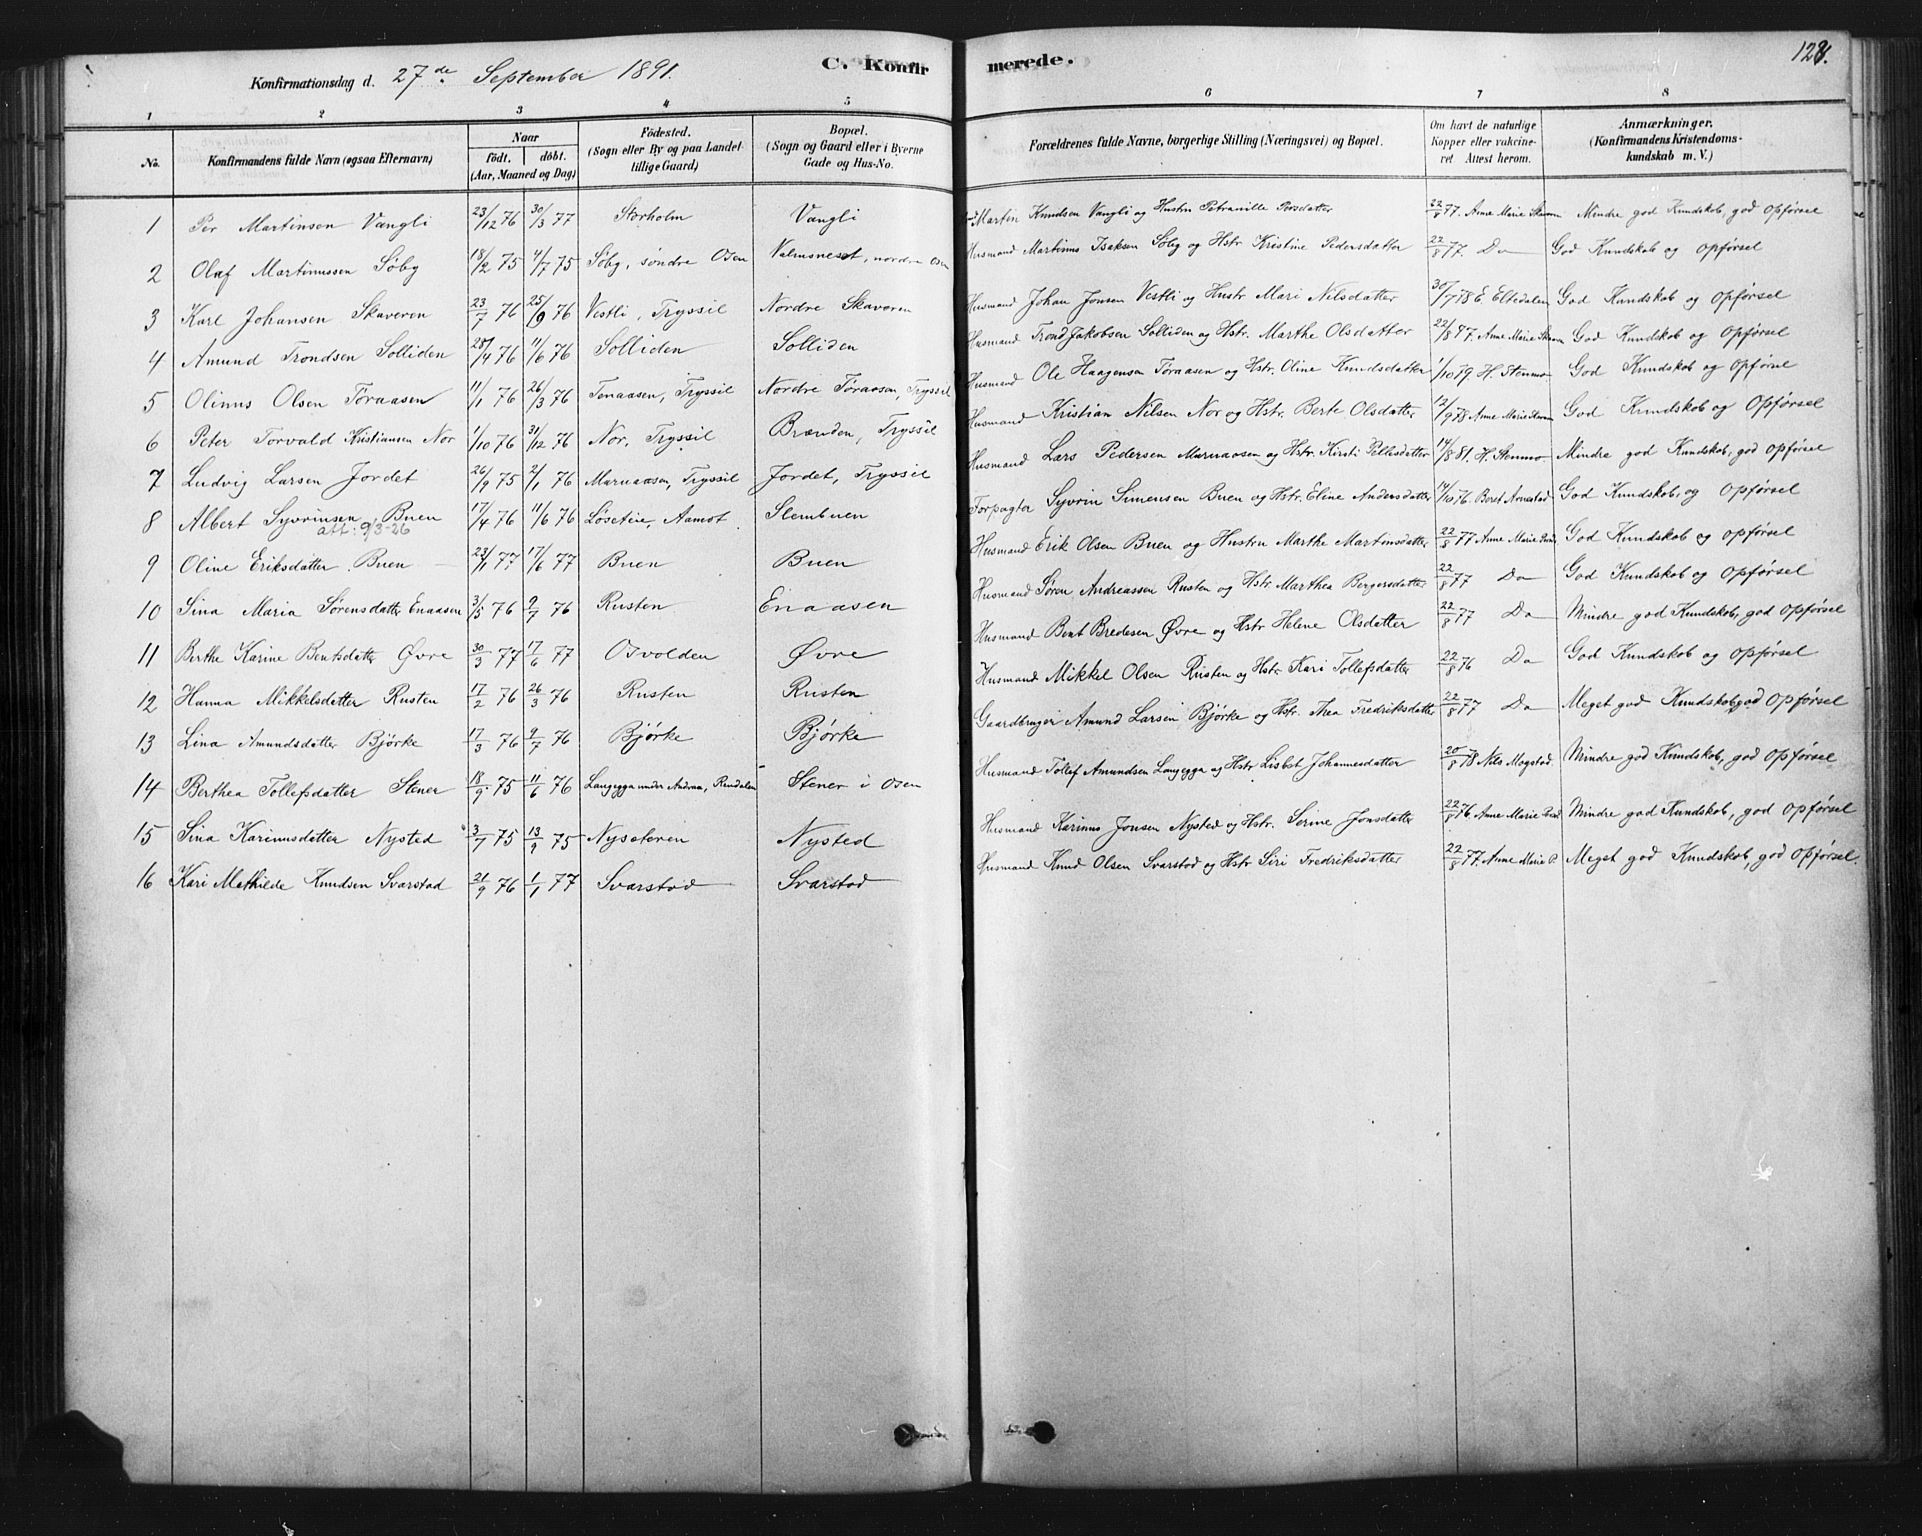 128.
Konfirmationsdag d. 27de September 1891.
C. Konfirmerede.
1 2 3 4 5 6 7 8
No.
Konfirmandens fulde Navn (ogsaa Efternavn)
Naar
födt. döbt.
(Aar, Maaned og Dag)
Födested.
(Sogn eller By og paa Landet tillige Gaard)
Bopæl.
(Sogn og Gaard eller i Byerne Gade og Hus-No.
Forældrenes fulde Navne, borgerlige Stilling (Næringsvei) og Bopæl.
Om havt de naturlige Kopper eller vakcineret Attest herom.
Anmærkninger.
(Konfirmandens Kristendomskundskab m. V.)
1 Per Martinsen Vangli 23/12 76 30/3 77 Storholm Vangli Martin Knudsen Vangli og Hustru Petronille Persdatter 22/8 77. Anne Marie Mindre god Kundskab, god Opførsel
2 Olaf Martinussen Søby 18/2 75 4/7 75 Søby, søndre Osen Valmsneset, nordre Osen Husmand Martinus Isaksen Søby og Hstr Kristine Pedersdatter 22/8 77. Do God Kundskab og Opførsel
3 Karl Johansen Skaveren 23/7 76 25/9 76 Vestli, Tryssil Nordre Skaveren Husmand Johan Jonsen Vestli og Hustr Mari Nilsdatter 30/7 78 E. Eltedalen God Kundskab og Opførsel
4 Amund Trondsen Solliden 28/4 76 11/6 76 Solliden Solliden Husmand Trond Jakobsen Solliden og Hstr. Marthe Olsdatter 22/8 77. Anne Marie God Kundskab og Opførsel
5 Olinus Olsen Føraasen 11/1 76 26/3 76 Tenaasen, Tryssil Nordre Føraasen, Tryssil Husmand Ole Haagensen Føraasen og Hstr. Oline Knudsdatter 1/10 79 H. Stenmo God Kundskab og Opførsel
6 Peter Torvald Kristiansen Nor 1/10 76 31/12 76 Nor, Tryssil Brænden, Tryssil Husmand Kristian Nilsen Nor og Hstr. Berte Olsdatter 12/9 78 Anne Marie God Kundskab og Opførsel
7 Ludvig Larsen Jordet 26/9 75 2/1 76 Marnaasen, Tryssil Jordet, Tryssil Husmand Lars Pedersen Marnaasen og Hstr. Kirsti Pellesdatter 14/8 81. H. Stenmo. Mindre god Kundskab, god Opførsel
8 Albert Syvrinsen Buen 17/4 76 11/6 76 Løseteie, Aamot Slembuen Forpagter Syvrin Simensen Buen og Hstr. Eline Andersdatter 14/10 76 Beret God Kundskab, og Opførsel
att. 9/3-26
9 Oline Eriksdatter Buen 23/1 77 17/6 77 Buen Buen Husmand Erik Olsen Buen og Hustru Marthe Martinsdatter 22/8 77 Anne Marie God Kundskab og Opførsel
10 Sina Maria Sørensdatter Enaasen 3/5 76 9/7 76 Rusten Enaasen Husmand Søren Andreassen Rusten og Hstr. Marthea Bergersdatter 22/8 77 Do God Kundskab og Opførsel
11 Berthe Karine Bentsdatter Øvre 30/3 77 17/6 77 Osvolden Øvre Husmand Bent Bredesen Øvre og Hstr Helene Olsdatter 22/8 77 Do Mindre god Kundskab, god Opførsel
12 Hanna Mikkelsdatter Rusten 17/2 76 26/3 76 Rusten Rusten Husmand Mikkel Olsen Rusten og Hstr Kari Tollefsdatter 22/8 76 Do God Kundskab og Opførsel
13 Lina Amundsdatter Bjørke 17/3 76 9/7 76 Bjørke Bjørke Gaardbruger Amund Larsen Bjørke og Hstr. Thea Fredriksdatter 22/8 77 Do Meget god Kundskab, god Opførsel
14 Berthea Tollefsdatter Stener 18/9 75 11/6 76 Langegga under Andraa, Rendalen Stener i Osen Husmand Tollef Amundsen Langegga og Hstr. Lisbet Johannesdatter 20/8 78 Nils Mogstad. Mindre god Kundskab, god Opførsel
15 Sina Karinusdatter Nysted 3/7 75 13/9 75 Nyseteren Nysted Husmand Karinus Jonsen Nysted og Hstr. Serine Jonsdatter 22/8 76 Anne Marie Mindre god Kundskab, god Opførsel
16 Kari Mathilde Knudsen Svarstad 21/9 76 1/1 77 Svarstad Svarstad Husmand Knud Olsen Svarstad og Hstr Siri Fredriksdatter 22/8 77. Anne Marie P. Meget god Kundskab, god Opførsel.